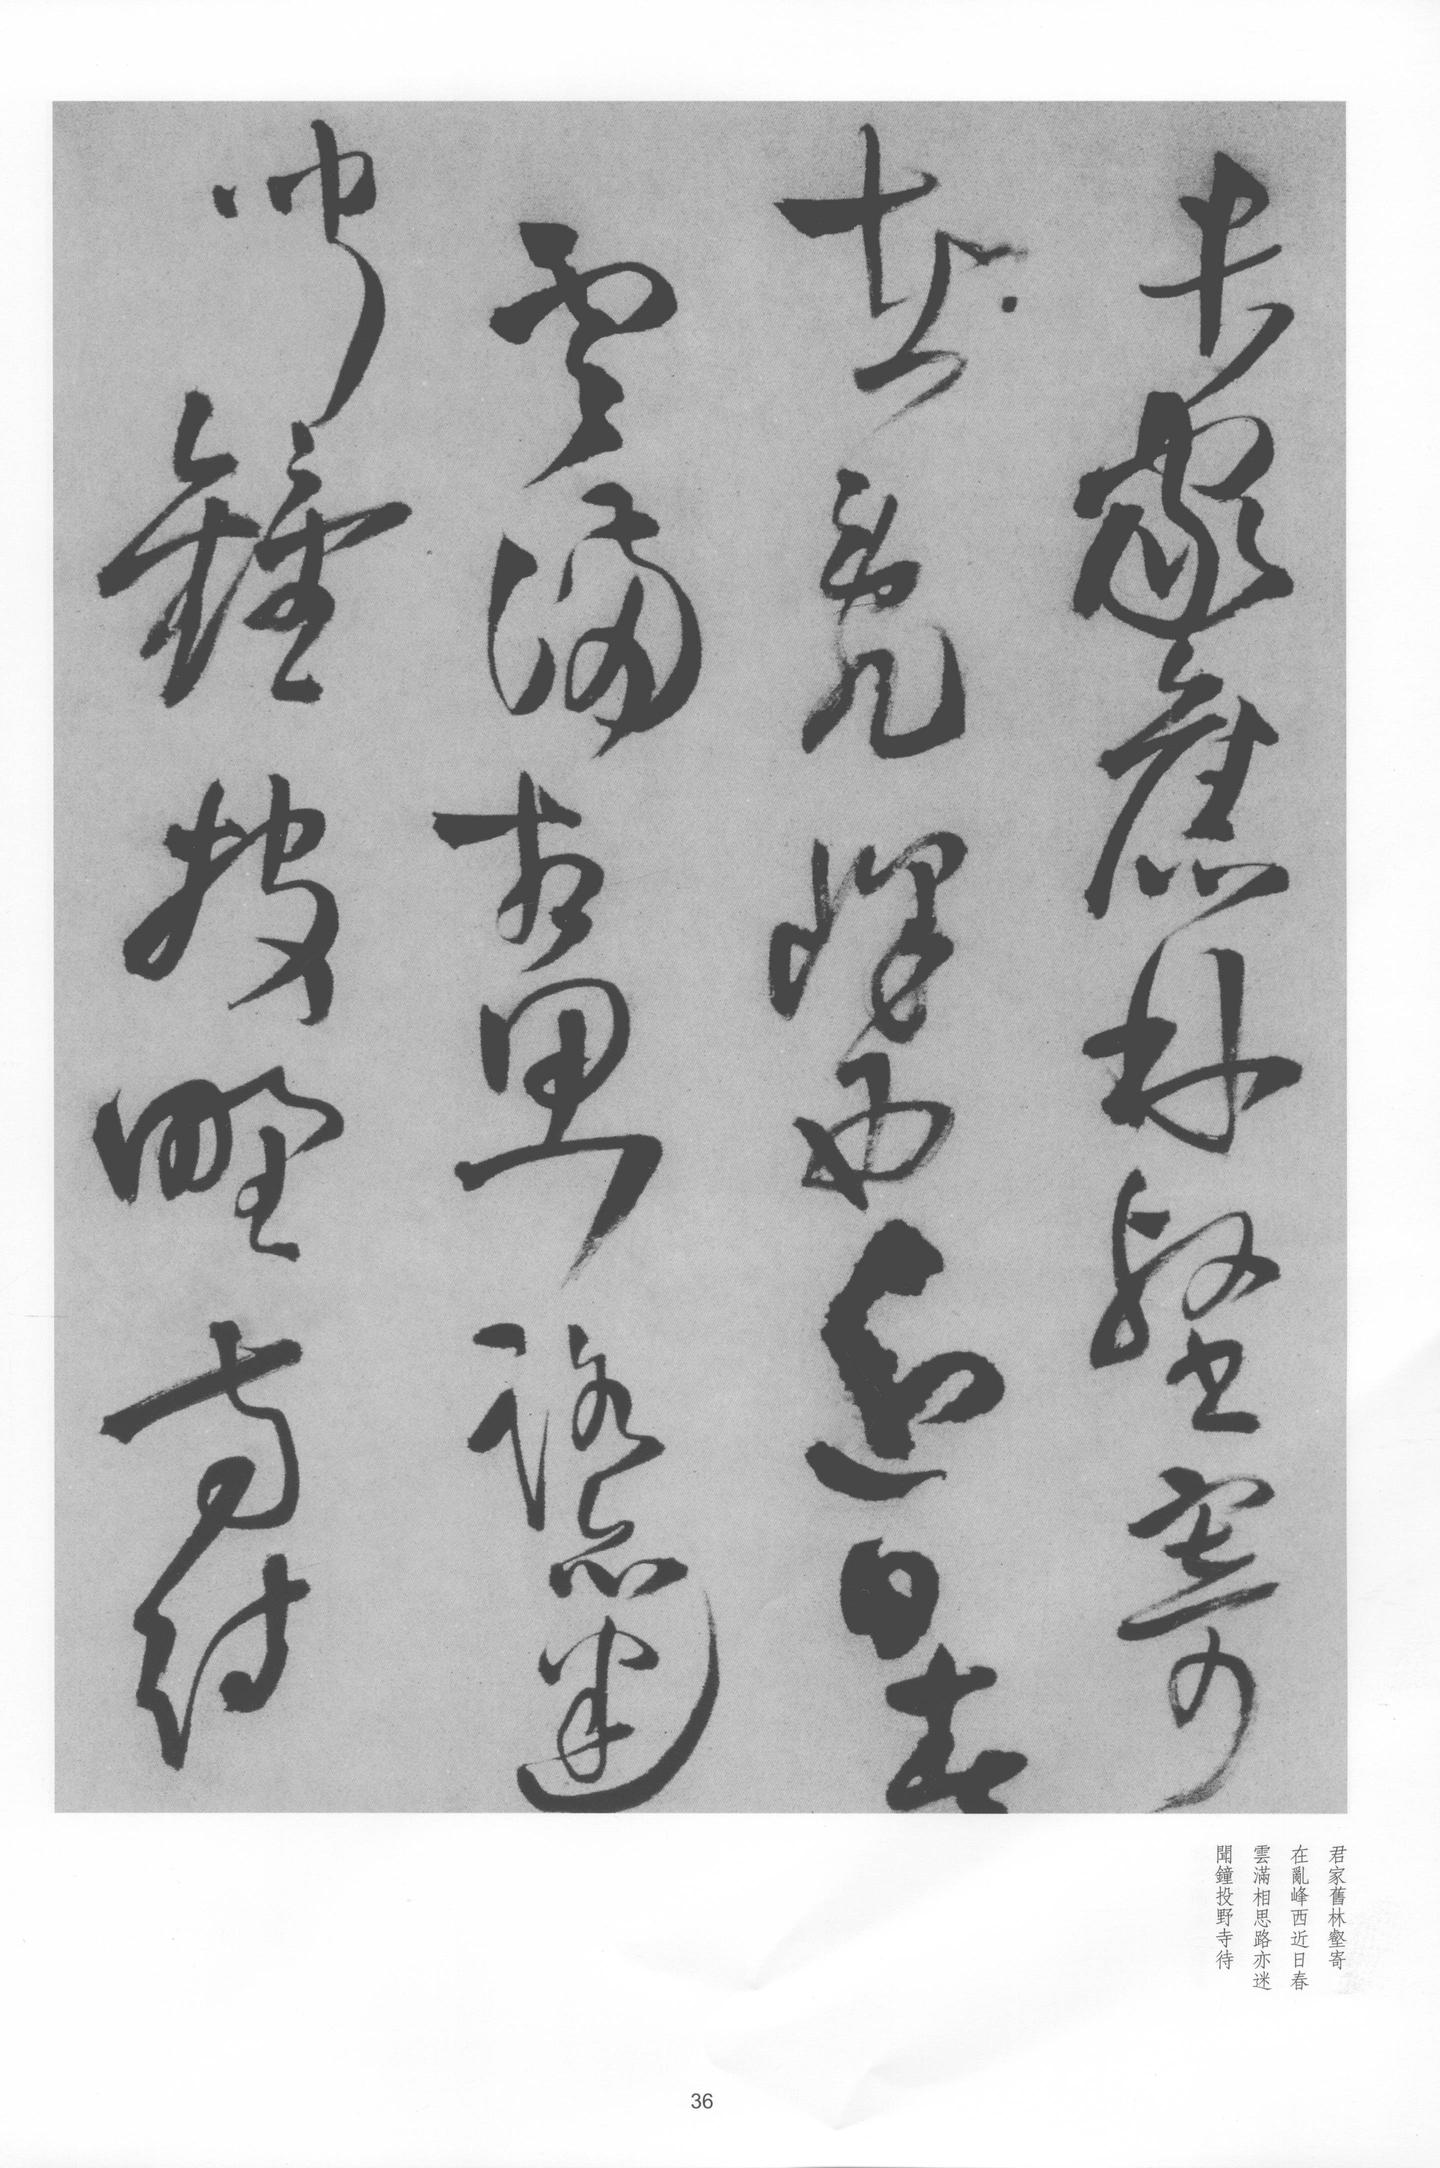 君家舊林壑寄
在亂峰西近日春
雲滿相思路亦迷
聞鐘投野寺待
君家舊林壑寄
在亂峰西近日春
雲滿相思路亦迷
聞鐘投野寺待
36